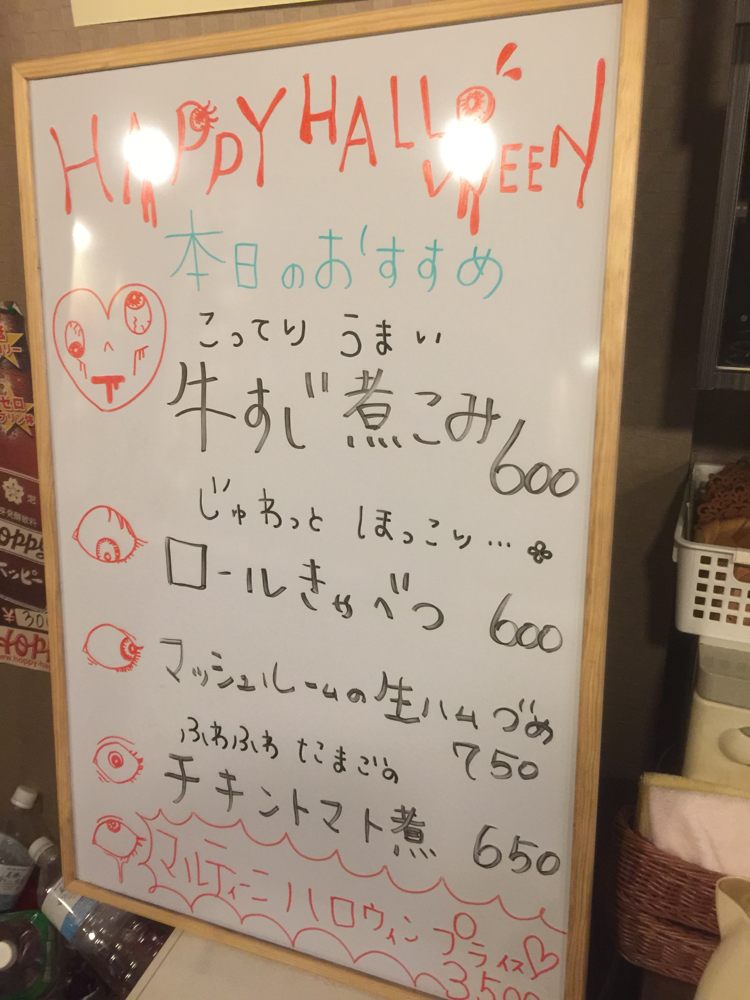 HAPPY HALLOWEEN
本日のおすすめ
こってり うまい
牛すじ煮こみ 600
じゅわっと ほっこり…
ロールきゃべつ 600
マッシュルームの生ハムづめ
750
ふわふわ たまごの
チキントマト煮 650
マルティーニ ハロウィン プライス♡
3500
ゼロ
ホッピー